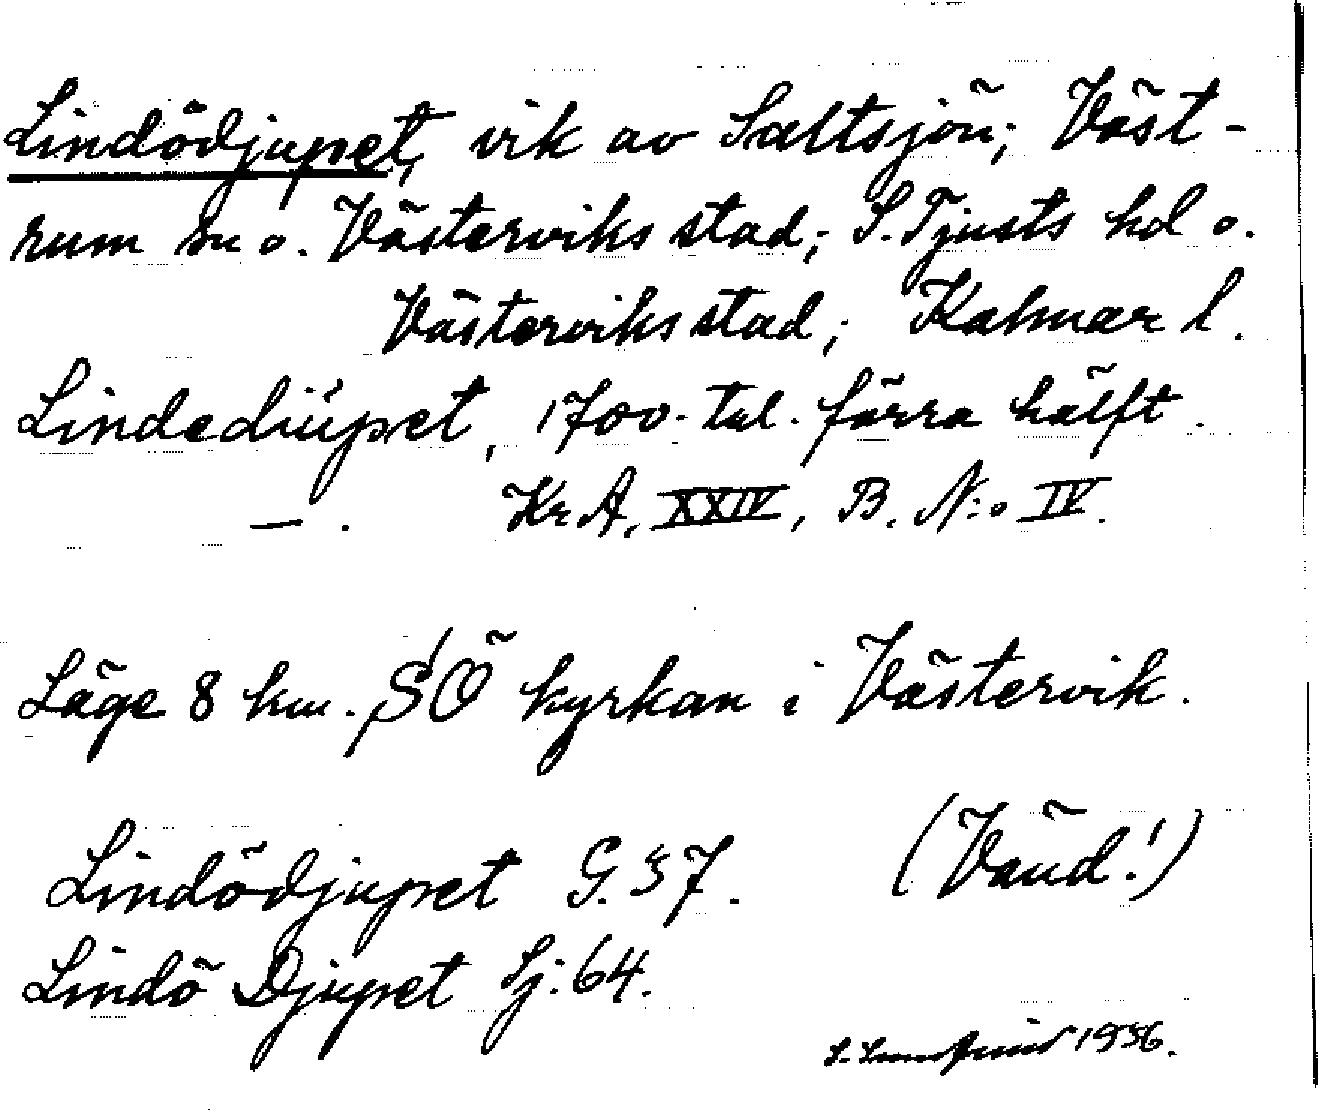 Lindödjupet, vik av Saltsjön; Väst-
rum sn o. Västerviks stad; S. Tjusts hd o.
Västerviks stad; Kalmar l.
Lindediüpet, 1700-tal. förra hälft.
— . Kr A, XXIV, B. N:o IV.
Läge 8 km. SÖ kyrkan i Västervik.
Lindödjupet G. 37. (Vänd!)
Lindö Djupet Sj: 64.
1936.